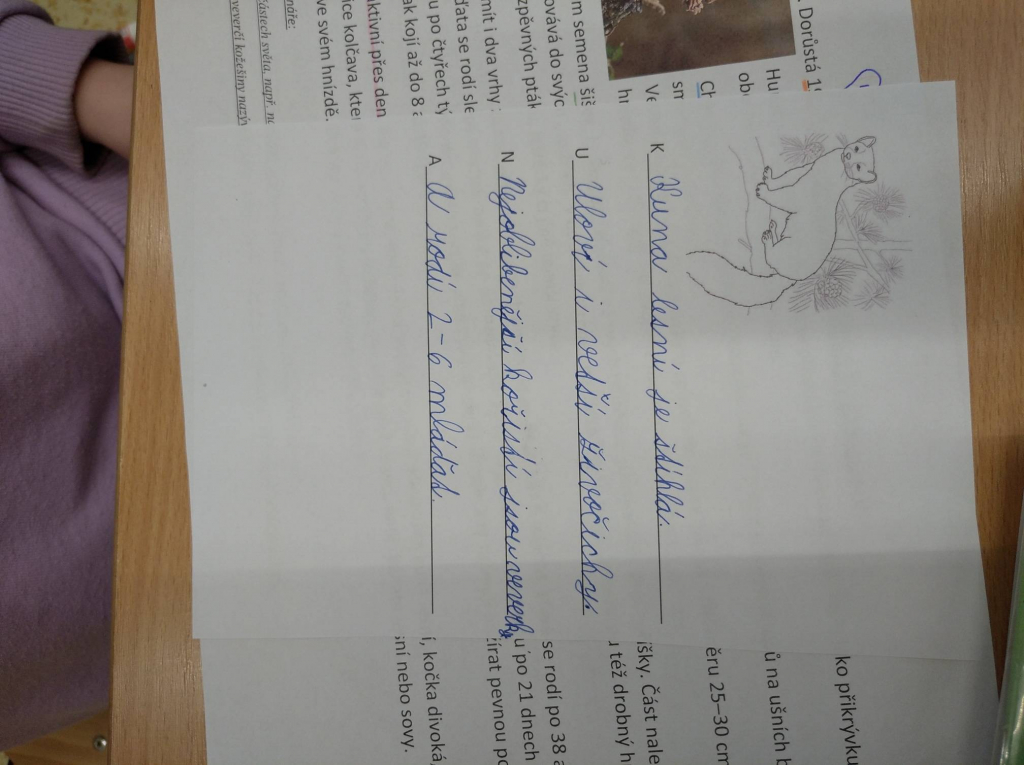 K Kuna lesní je štíhlá.
U Uloví i vetší živočichy.
N Nejoblibenější kořistí jsou veverky
A A rodí 2-6 mláďat
. Dorůstá
Hu
ob
m semena šiš
ovává do svýc
zpěvných pták
mít i dva vrhy:
ďata se rodí sle
u po čtyřech tý
ak kojí až do 8
aktivní přes den
ice kolčava, kter
ve svém hnízdě.
částech světa, např. na
veverčí kožešiny nazýv
ko přikrývku
ů na ušních b
ěru 25–30 cm
išky. Část nale
u též drobný h
se rodí po 38
u po 21 dnech
írat pevnou po
í, kočka divoká,
sní nebo sovy.